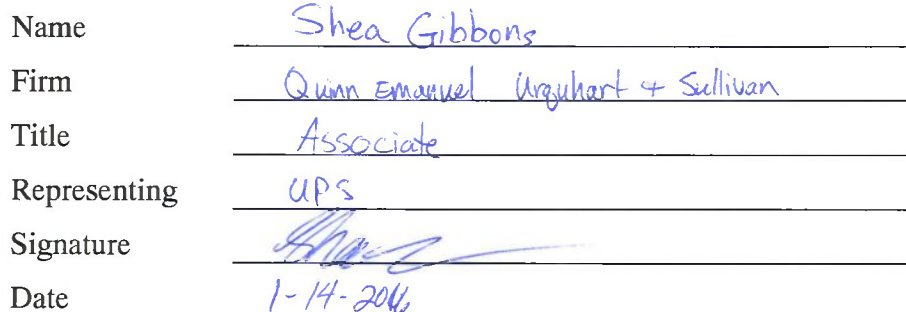 Name Shea Gibbons
Firm Quinn Emanuel Urquhart + Sullivan
Title Associate
Representing UPS
Signature
Date 1-14-2016